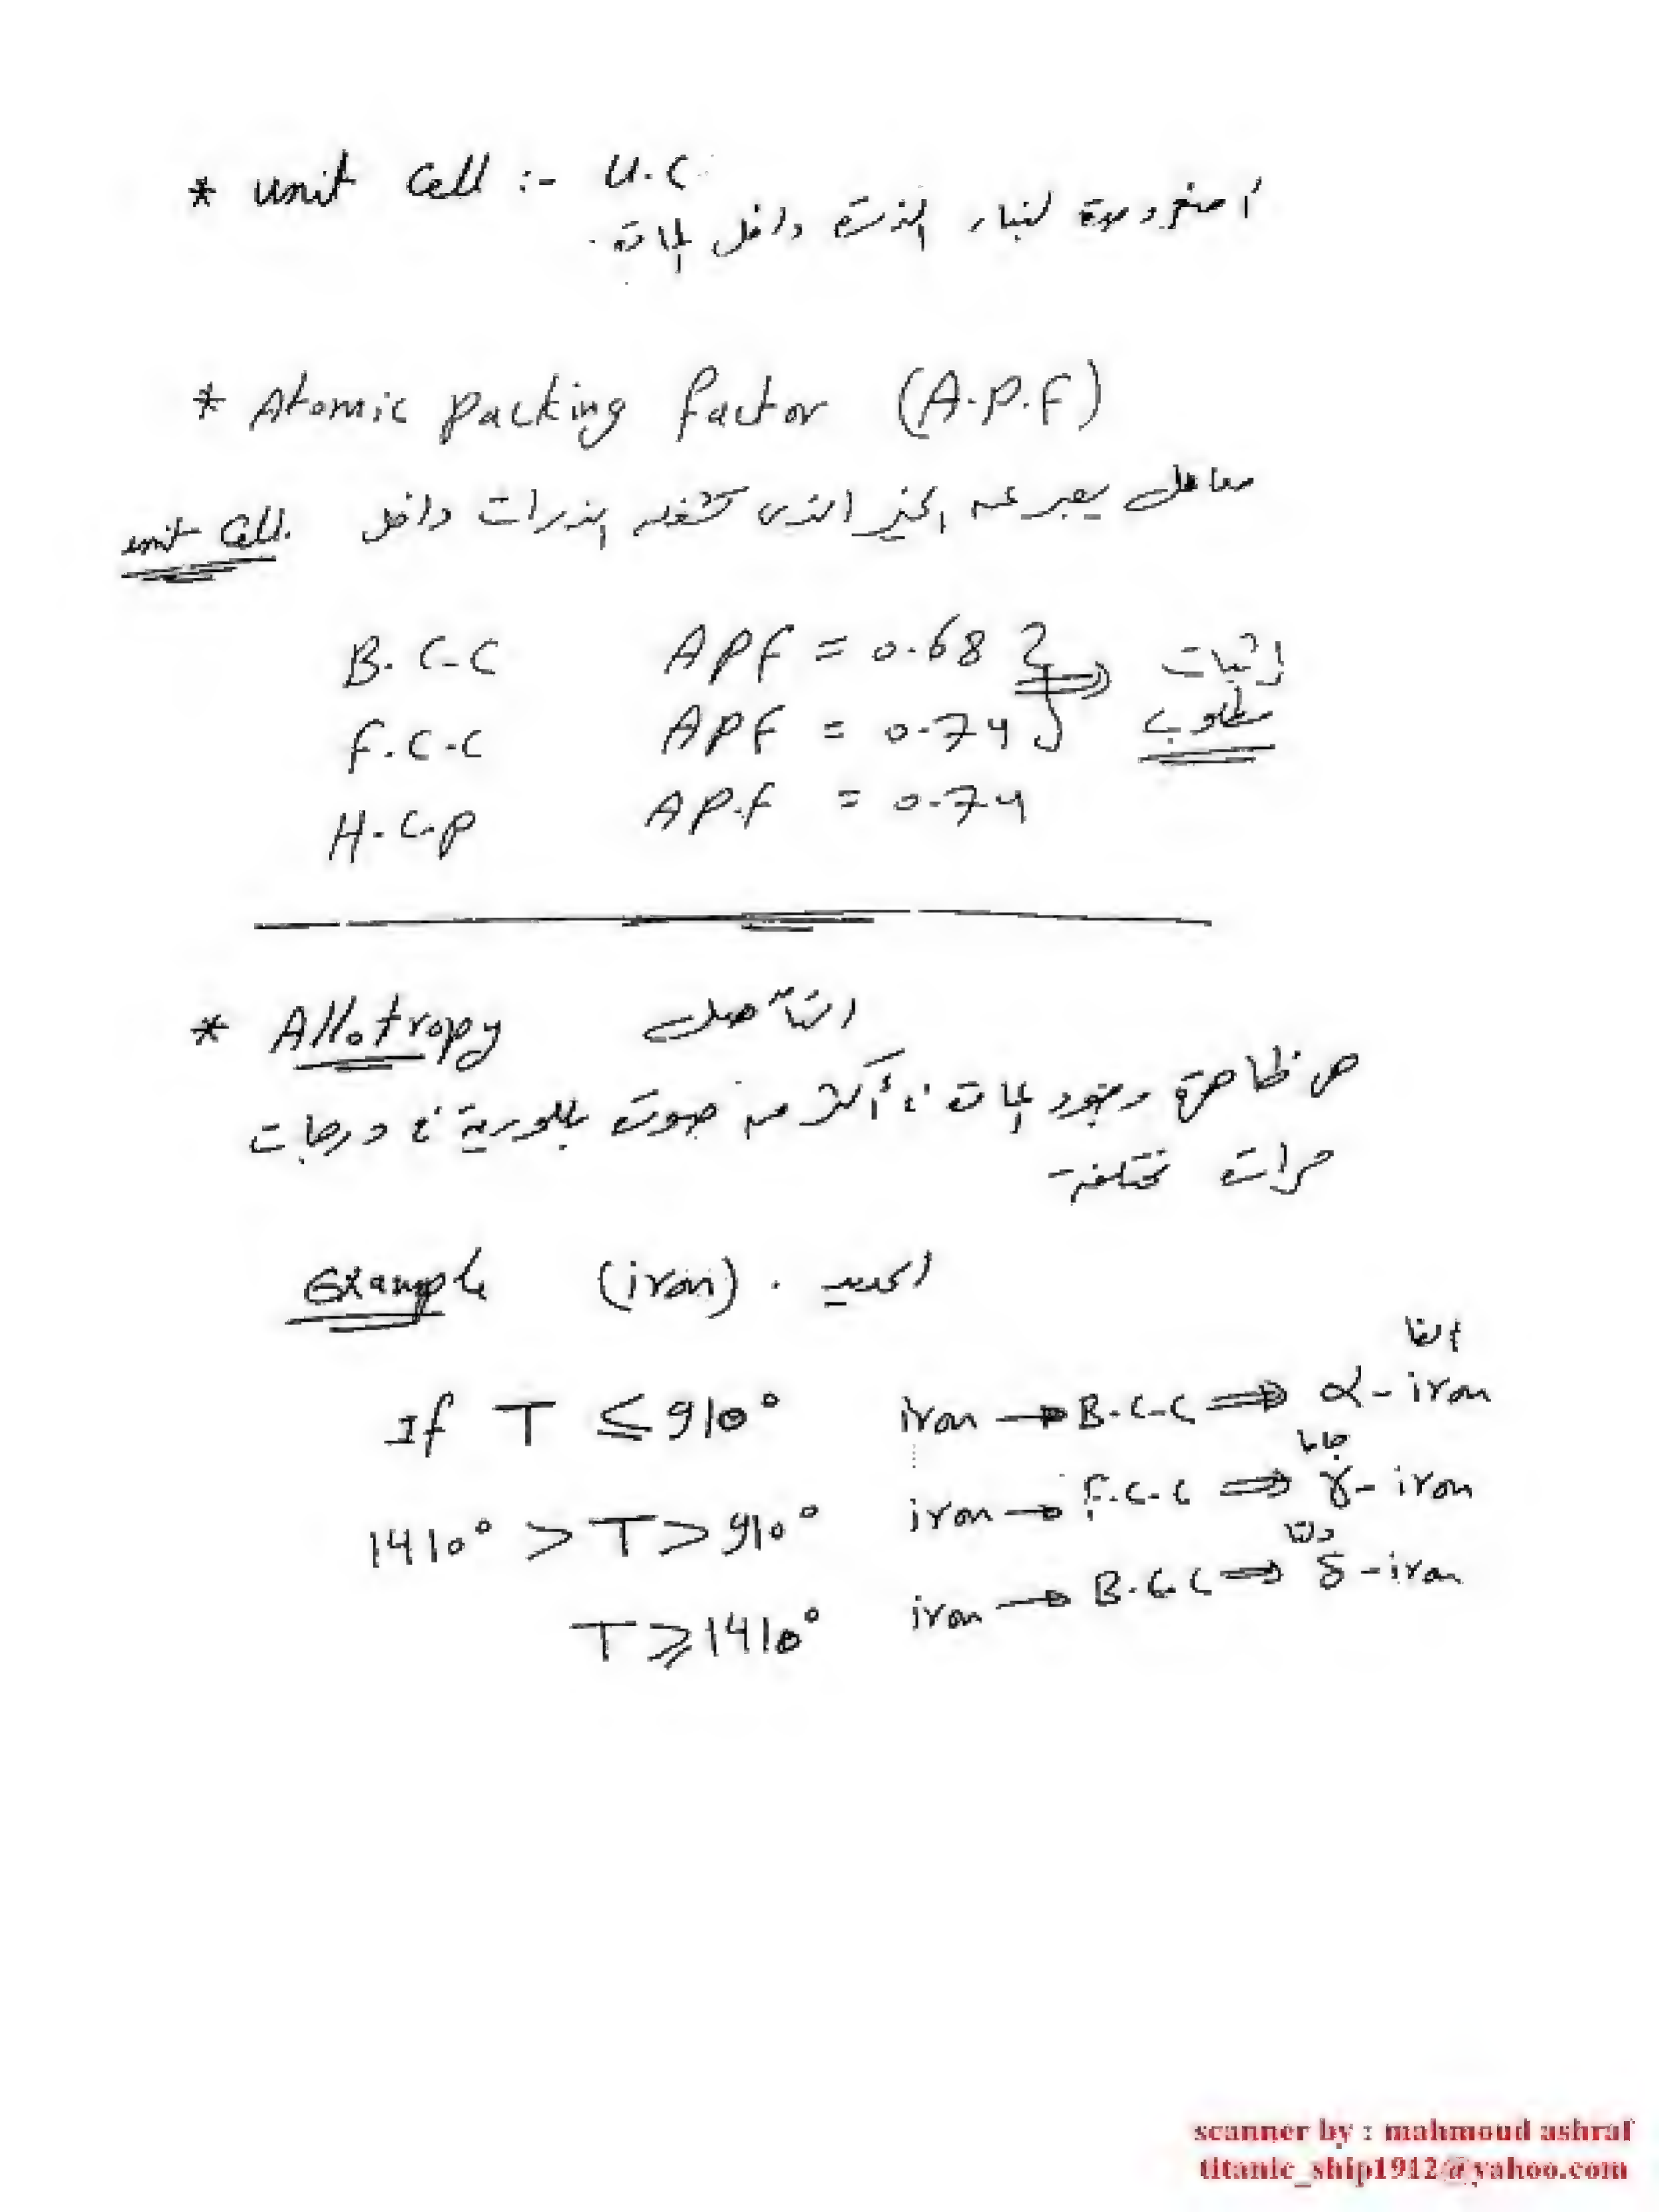 * unit Cell :- U.C
أصغر وحدة لبناء الذرة داخل المادة.
* Atomic packing factor (A.P.F)
معامل يعبر عن الحيز الذى تشغله الذرات داخل unit Cell.
B.C.C APF = 0.68
F.C.C APF = 0.74
إثبات مطلوب
H.C.P AP.F = 0.74
* Allotropy التآصل
هى ظاهرة وجود المادة فى أكثر من صورة بللورية فى درجات
حرارة مختلفة
Example (iron). الحديد
الفا
If T ≤ 910° iron → B.C.C ⇒ α-iron
جاما
1410° > T > 910° iron → F.C.C ⇒ γ-iron
دلتا
T ≥ 1410° iron → B.C.C ⇒ δ-iron
scanner by : mahmoud ashraf
titanic_ship1912@yahoo.com